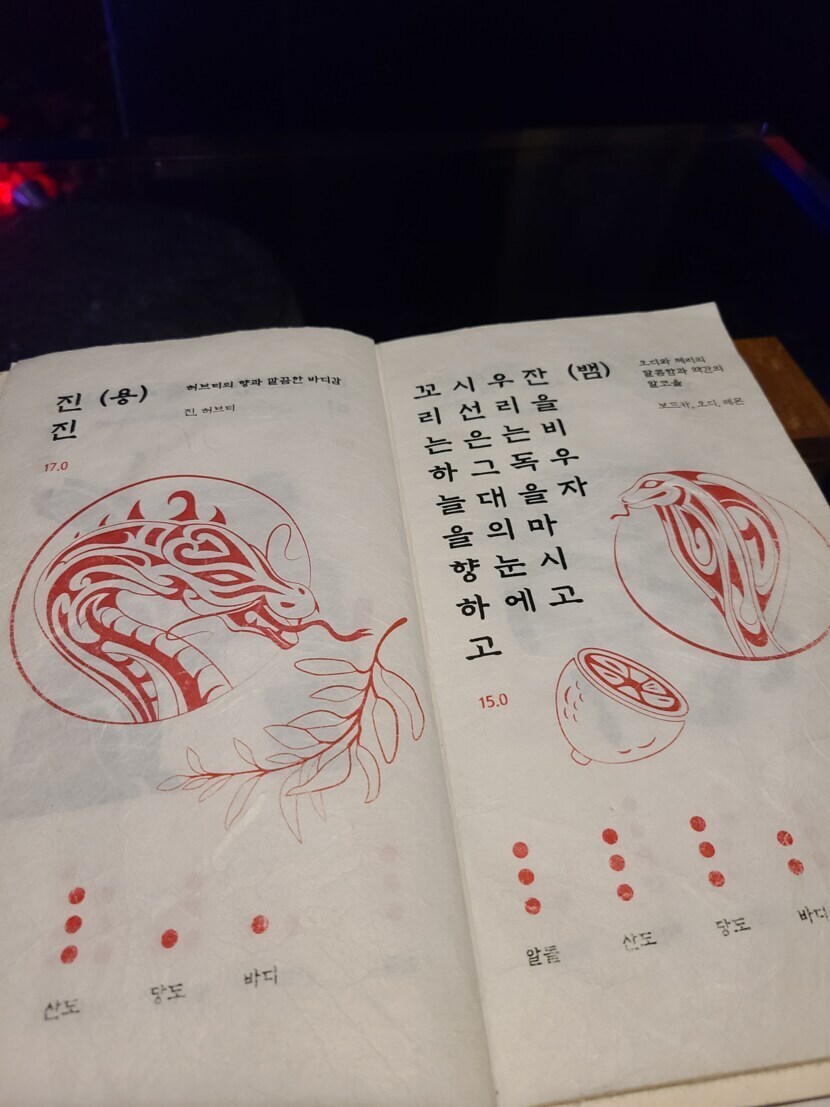 진진 (용)
허브티의 향과 깔끔한 바디감
진, 허브티
17.0
산도 당도 바디
꼬리는하늘을향하고
시선은그대의눈에
우리는독을마시고
잔을비우자
(뱀)
오디와 체리의
달콤함과 약간의
알코올
보드카, 오디, 레몬
15.0
알콜 산도 당도 바디